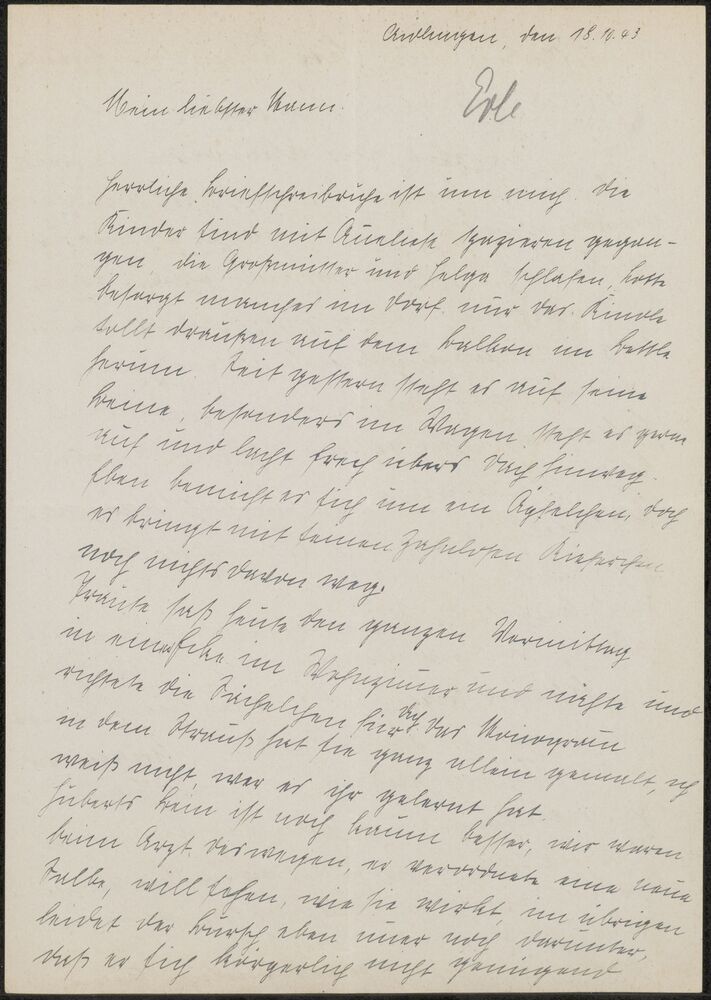 Aidlingen, den 18.10.43
Erle
Mein liebster Mann!
Herrliche Briefschreibruhe ist um mich. Die
Kinder sind mit Aneliese spazieren gegan-
gen, die Großmutter und Helga schlafen, Lotte
besorgt manches im Dorf, nur das Kindle
tollt draußen auf dem Balkon im Bettle
herum. Seit gestern steht es auf seine
Beine, besonders im Wagen steht es gerne
auf und lacht frech übers Dach hinweg.
Eben bemüht er sich um ein Äpfelchen, doch
er bringt mit seinen zahnlosen Kieferchen
noch nichts davon weg.
Traute saß heute den ganzen Vormittag
in einer Ecke im Wohnzimmer und nähte und
richtete die Sächelchen für dich das Monogram
in dem Strauß hat sie ganz allein gemalt, ich
weiß nicht, wer es ihr gelernt hat.
Huberts Bein ist noch kaum besser, wir waren
beim Arzt deswegen, er verordnete eine neue
Salbe, will sehen, wie sie wirkt, im übrigen
leidet der Bursch eben immer noch darunter,
daß er sich körperlich nicht genügend